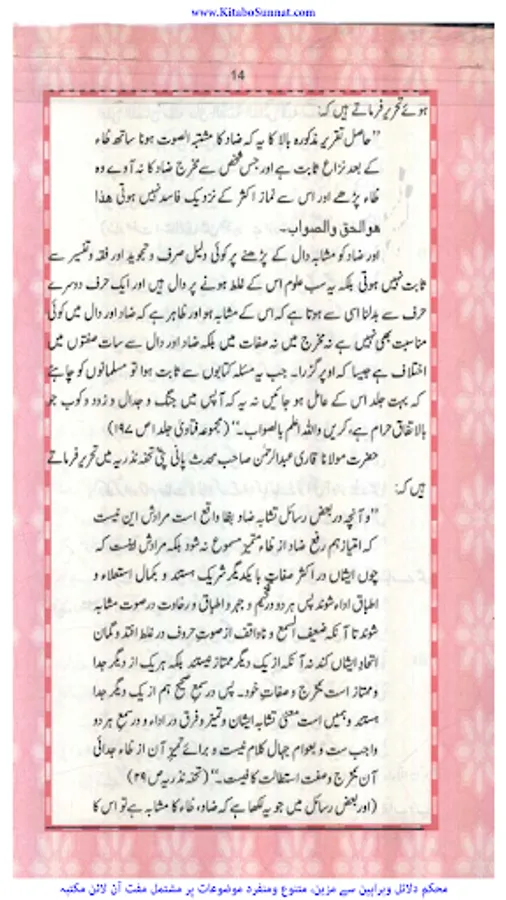 www.KitaboSunnat.com
14
ہوئے تحریر فرماتے ہیں کہ:
"حاصل تقریر مذکورہ بالا کا یہ کہ ضاد کا مشتبہ الصوت ہونا ساتھ ظاء
کے بعد نزاع ثابت ہے اور جس شخص سے مخرج ضاد کا نہ آوے وہ
ظاء پڑھے اور اس سے نماز اکثر کے نزدیک فاسد نہیں ہوتی ھذا
ھو الحق والصواب۔
اور ضاد کو مشابہ دال کے پڑھنے پر کوئی دلیل صرف و تجوید اور فقہ و تفسیر سے
ثابت نہیں ہوتی بلکہ یہ سب علوم اس کے غلط ہونے پر دال ہیں اور ایک حرف دوسرے
حرف سے بدلنا اسی سے ہوتا ہے کہ اس کے مشابہ ہو اور ظاہر ہے کہ ضاد اور دال میں کوئی
مناسبت بھی نہیں ہے نہ مخرج میں نہ صفات میں بلکہ ضاد اور دال سے سات صفتوں میں
اختلاف ہے جیسا کہ اوپر گزرا۔ جب یہ مسئلہ کتابوں سے ثابت ہوا تو مسلمانوں کو چاہئے
کہ بہت جلد اس کے عامل ہو جائیں نہ یہ کہ آپس میں جنگ و جدال و زدو و کوب جو
بالاتفاق حرام ہے، کریں واللہ اعلم بالصواب۔" (مجموعہ فتاویٰ جلد ا ص ۱۹۷)
حضرت مولانا قاری عبدالرحمٰن صاحب محدث پانی پتی تحفہ نذریہ میں تحریر فرماتے
ہیں کہ:
"و آنچہ در بعض رسائل تشابہ ضاد بظا واقع است مرادش این نیست
کہ امتیاز ہم رفع ضاد از ظاء متمیز مسموع نہ شود بلکہ مرادش اینست کہ
چوں ایشاں در اکثر صفات بایکدیگر شریک ہستند و بکمال استعلاء و
اطباق اداء شوند پس ہر دو در تفخیم و جہر و اطباق و رخاوت در صوت مشابہ
شوند تا آنکہ ضعیف السمع و ناواقف از صوت حروف در غلط افتد و گمان
اتحاد ایشاں کند نہ آنکہ از یک دیگر ممتاز نیستند بلکہ ہر یک از دیگر جدا
و ممتاز است بمخرج و صفات خود۔ پس در سمع صحیح ہم از یک دیگر جدا
ہستند و ہمیں است معنی تشابہ ایشان و تمیز و فرق در اداء و در سمع ہر دو
واجب ست و بعوام جہال کلام نیست و برائے تمیز آن از ظاء جدائی
آن بمخرج و صفت استطالت کافیست۔" (تحفہ نذریہ ص ۲۹)
(اور بعض رسائل میں جو یہ لکھا ہے کہ ضاد، ظاء کا مشابہ ہے تو اس کا
محکم دلائل وبراہین سے مزین، متنوع ومنفرد موضوعات پر مشتمل مفت آن لائن مکتبہ